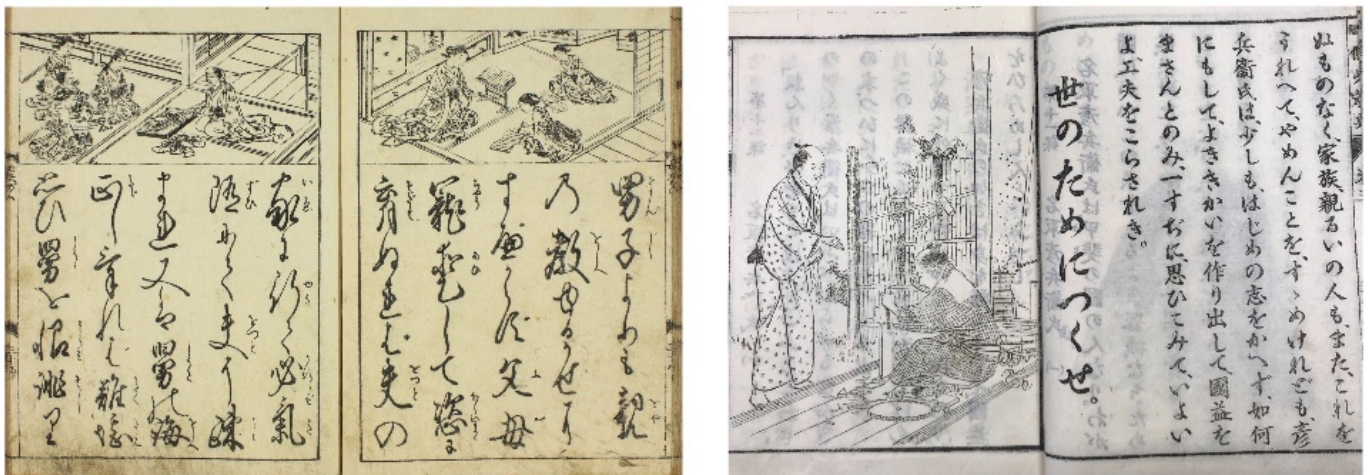 男子よりも親
の教ゆるがせに
すべからず父母
寵愛して恣に
育ぬれば夫の
家に行て必気
随にて夫に疎
まれ又は舅の誨
正しければ難堪
思ひ舅を恨誹り
ぬものなく、家族、親るいの人も、また、これを
うれへて、やめんことを、すゝめけれども、彦
兵衞氏は、少しも、はじめの志をかへず、如何
にもして、よききかいを作り出して、國益を
まさんとのみ、一すぢに思ひこみて、いよい
よ、工夫をこらされき。
世のためにつくせ。